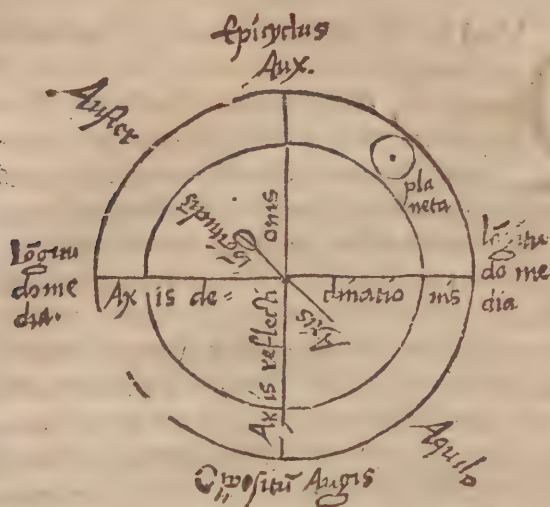 Epicyclus
Aux.
Auster
planeta
Lōgitu
do me
dia.
Lōgitu
do me
dia
Axis de=
clinatio nis
Axis reflecti
onis
Axis
Aquilo
Oppositū Augis